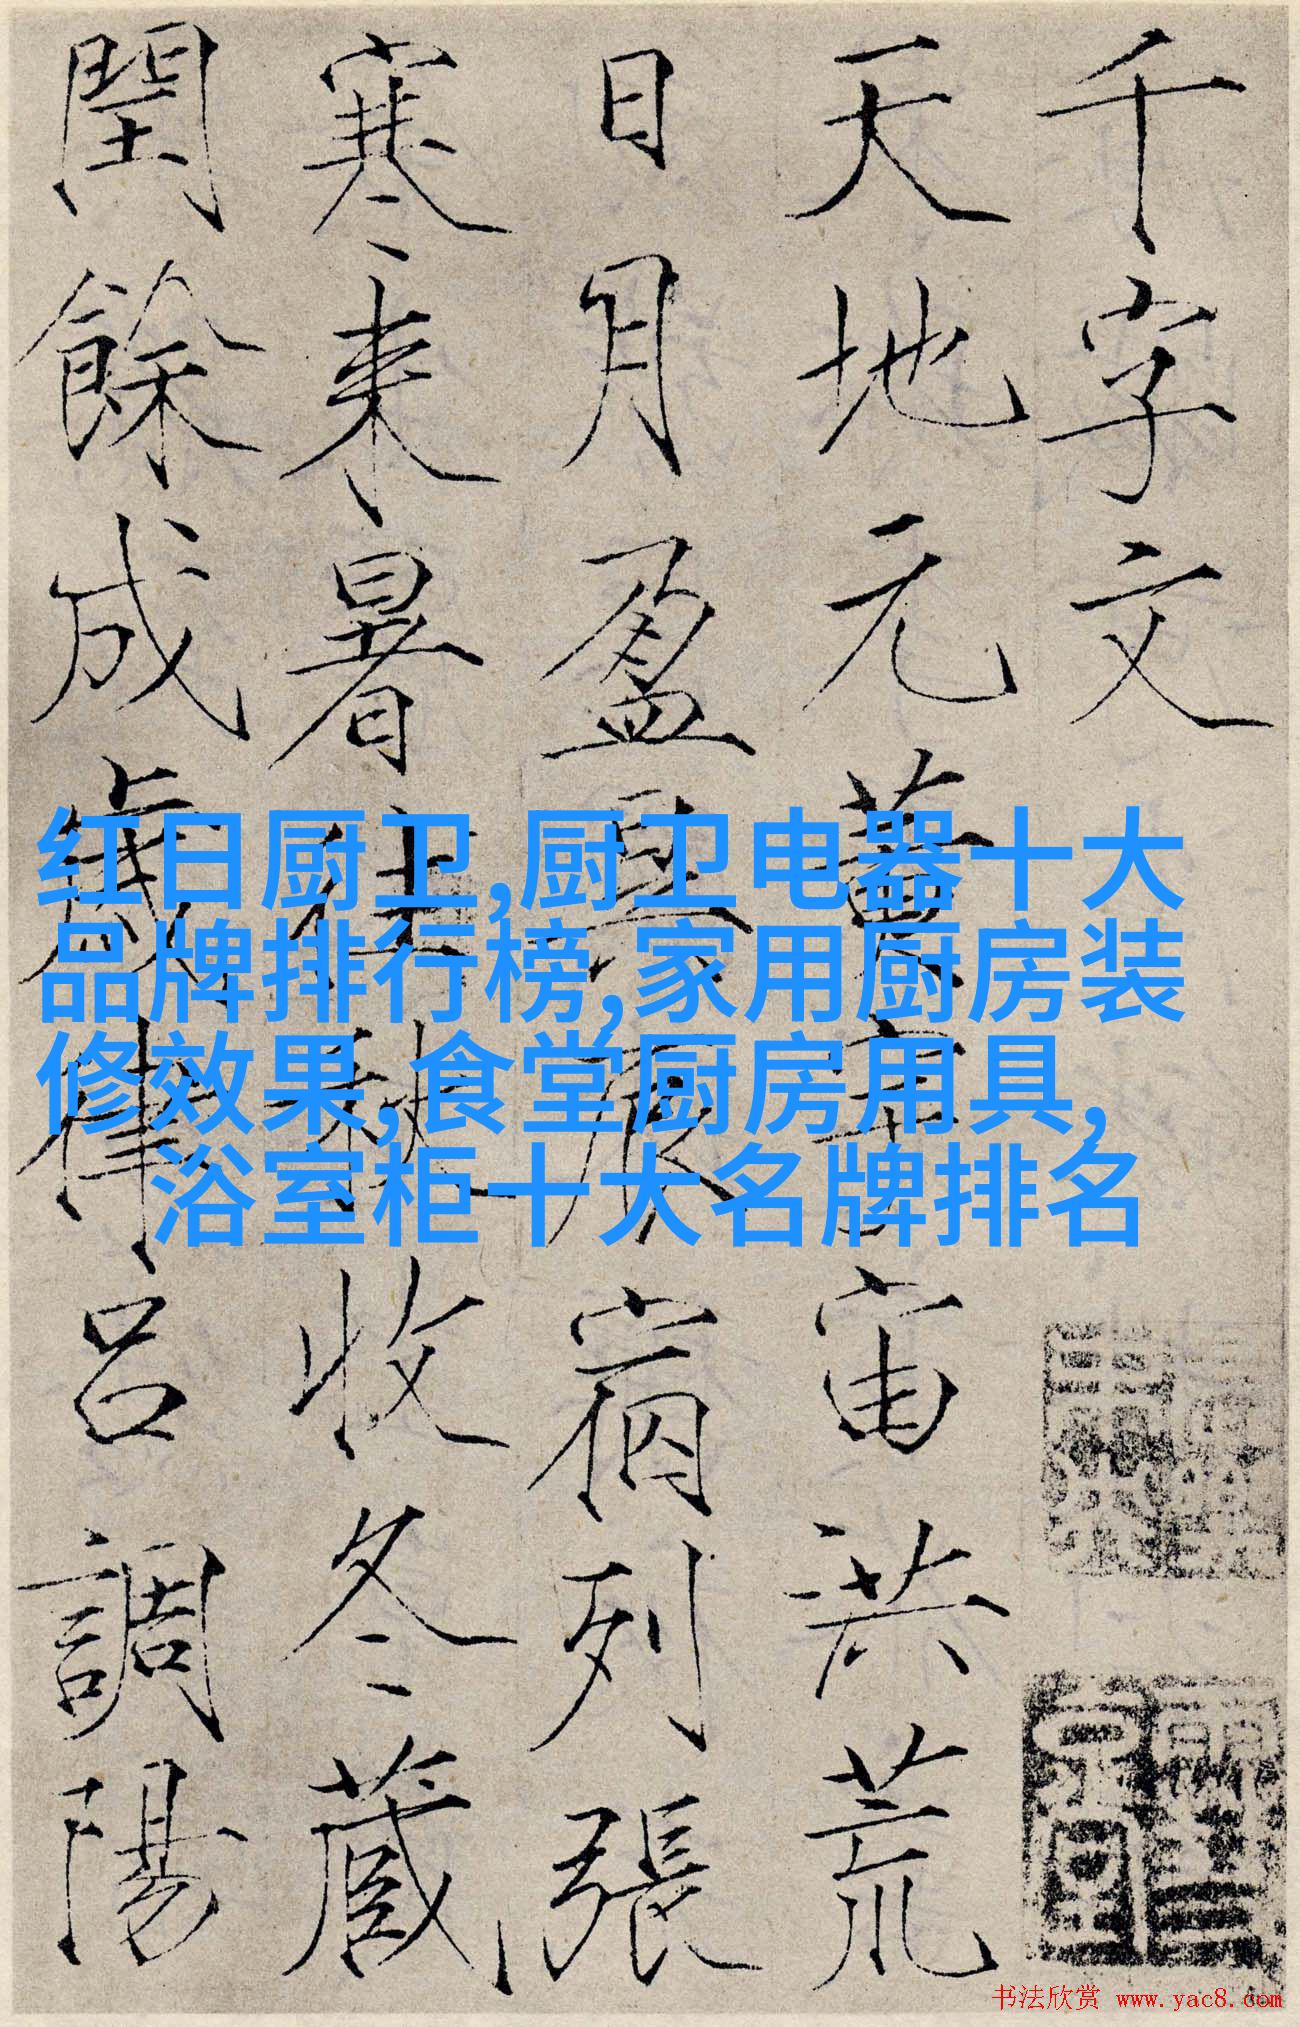 千字文
天地元黃宇宙洪荒
日月盈昃辰宿列張
寒来暑往秋收冬藏
閏餘成歲律吕調陽
红日厨卫,厨卫电器十大
品牌排行榜,家用厨房装
修效果,食堂厨房用具,
浴室柜十大名牌排名
书法欣赏 www.yac8.com